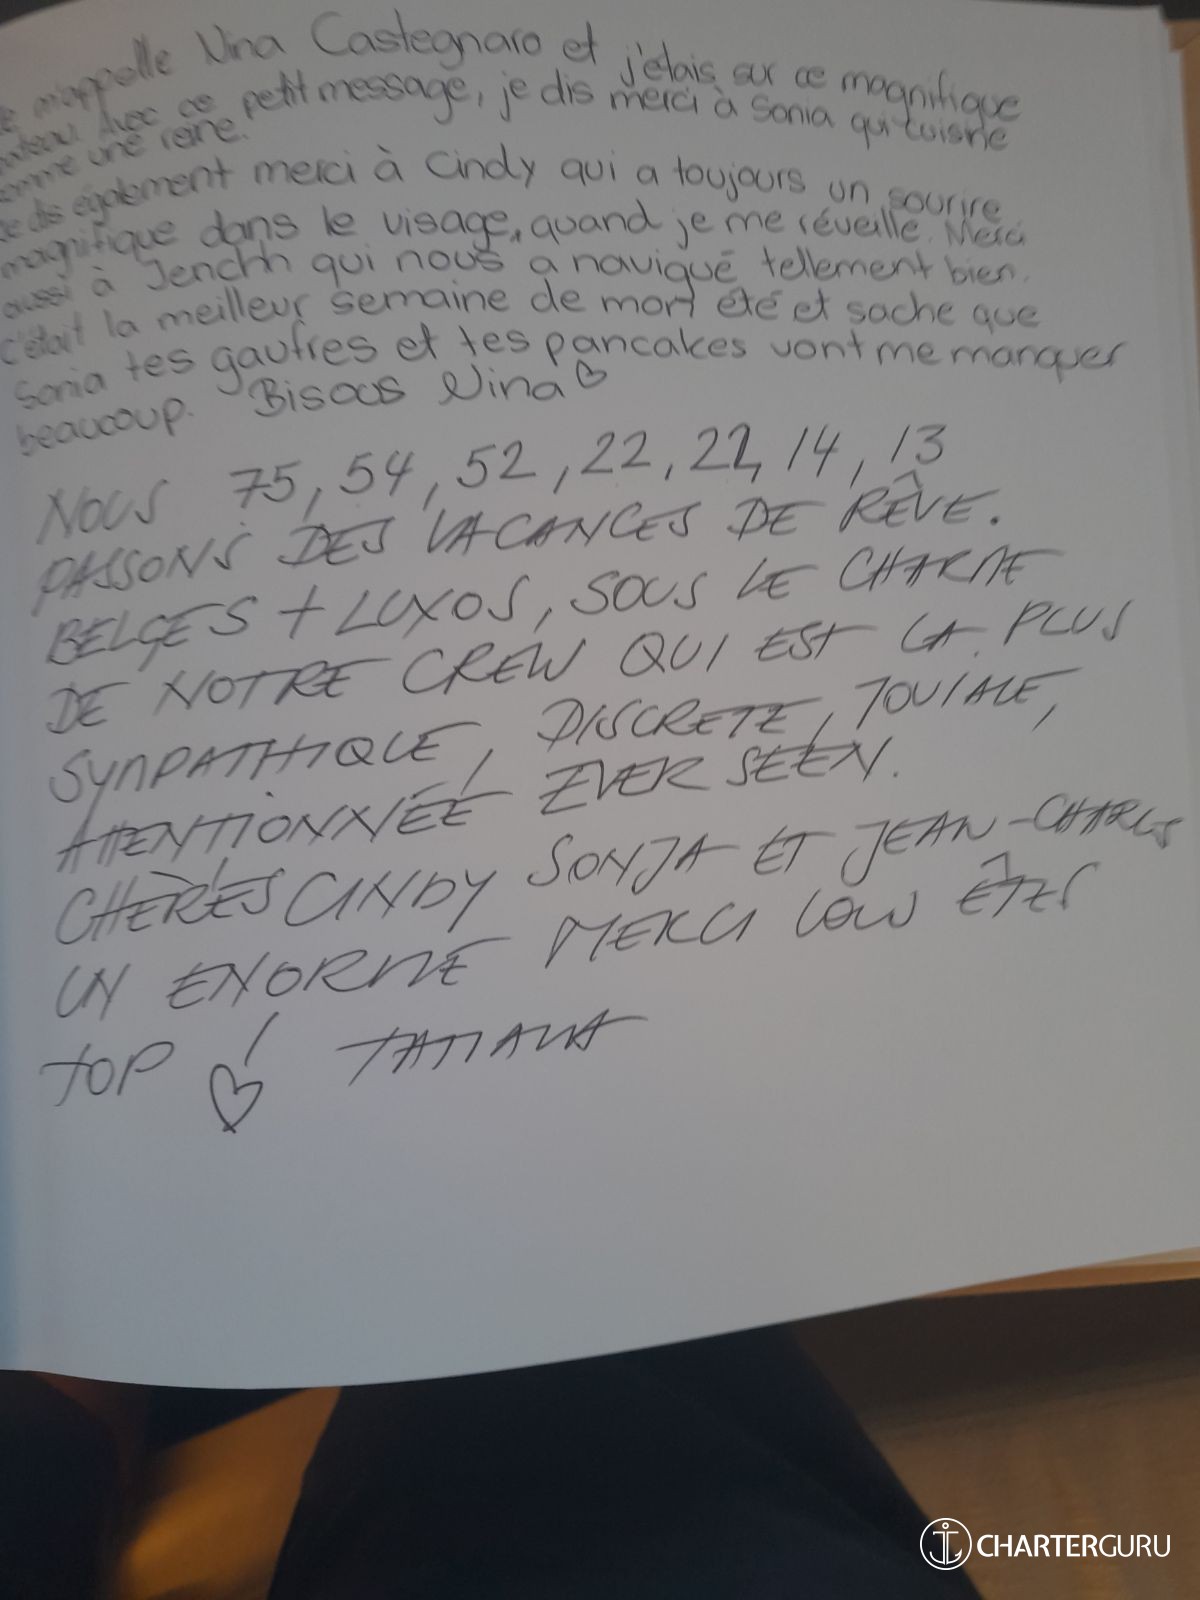 m'appelle Nina Castegnaro et j'étais sur ce magnifique
bateau. Avec ce petit message, je dis merci à Sonia qui cuisine
comme une reine.
Je dis également merci à Cindy qui a toujours un sourire
magnifique dans le visage, quand je me réveille. Merci
aussi à qui nous a navigué tellement bien.
C'était la meilleur semaine de mon été et sache que
Sonia tes gaufres et tes pancakes vont me manquer
beaucoup. Bisous Nina♡
NOUS 75, 54, 52, 22, 22, 14, 13
PASSONS DES VACANCES DE RÊVE.
BELGES + LUXOS, SOUS LE CHARME
DE NOTRE CREW QUI EST LA PLUS
SYMPATHIQUE, DISCRETE, JOVIALE,
ATTENTIONNÉE EVER SEEN.
CHÈRES CINDY SONJA ET JEAN-CHARLES
UN ENORME MERCI ÊTES
TOP ! ♡ TATIANA
CHARTERGURU